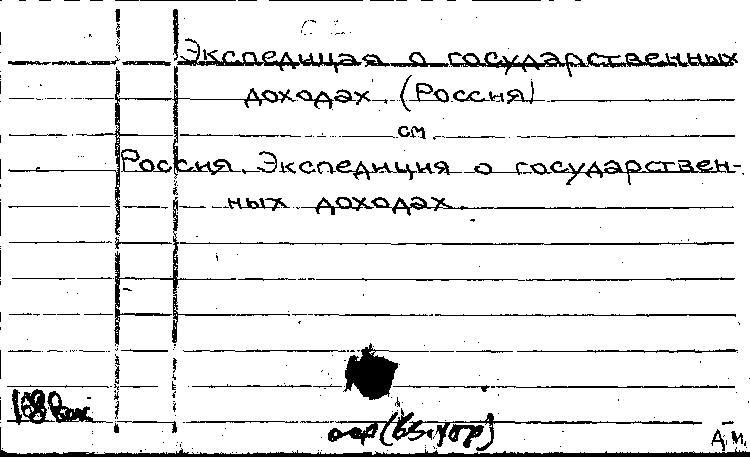 Экспедицая о государственных
доходах. (Россия)
см.
Россия. Экспедиция о государствен-
ных доходах.
А.М.